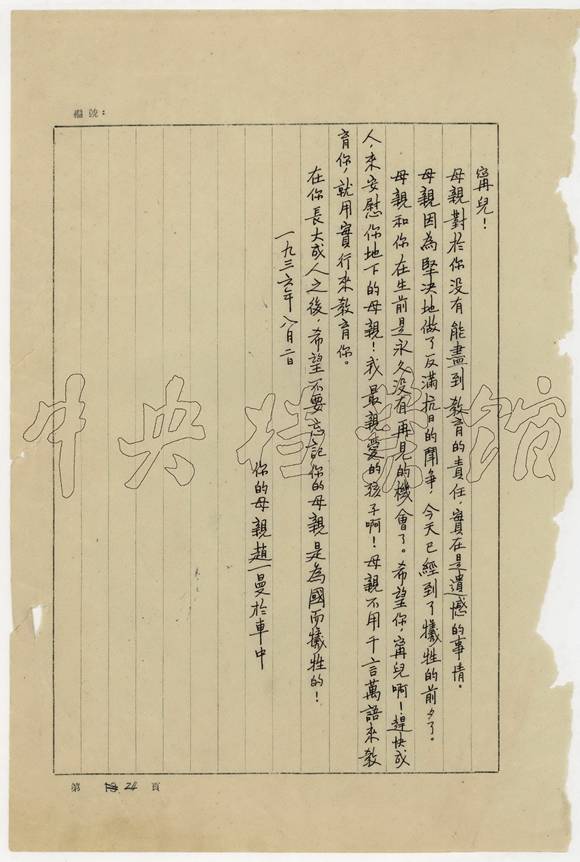 編號：
甯兒！
母親對於你没有能盡到教育的責任，實在是遺憾的事情。
母親因為堅决地做了反滿抗日的鬥争，今天已經到了犧牲的前夕了。
母親和你在生前是永久没有再見的機會了。希望你，甯兒啊！趕快成
人，來安慰你地下的母親！我最親愛的孩子啊！母親不用千言萬語來教
育你，就用實行來教育你。
在你長大成人之後，希望不要忘記你的母親是為國而犧牲的！
一九三六年八月二日
你的母親趙一曼於車中
中央檔案館
第 24 頁